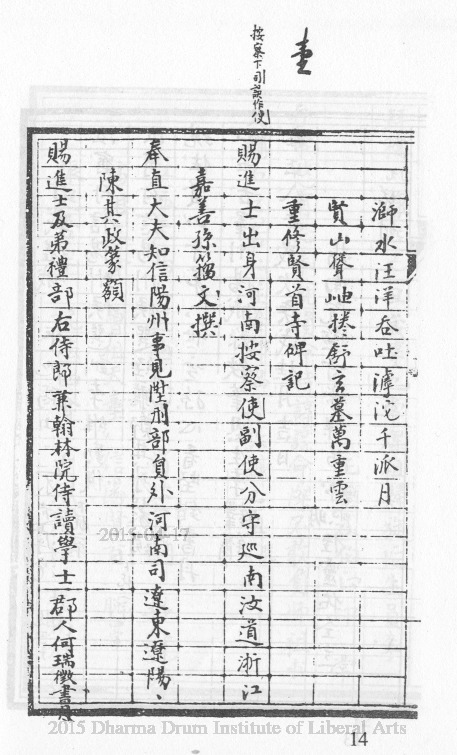 按察下司誤作使
溮水汪洋吞吐滹沱千派月
賢山聳岫捲舒玄墓萬重雲
重修賢首寺碑記
賜進士出身河南按察使副使分守巡南汝道浙江
嘉善孫籀文撰
奉直大夫知信陽州事見陞刑部員外河南司遼東遼陽、
陳其政篆額
賜進士及第禮部右侍郎兼翰林院侍讀學士郡人何瑞徵書丹
2015-04-17
2015 Dharma Drum Institute of Liberal Arts
14